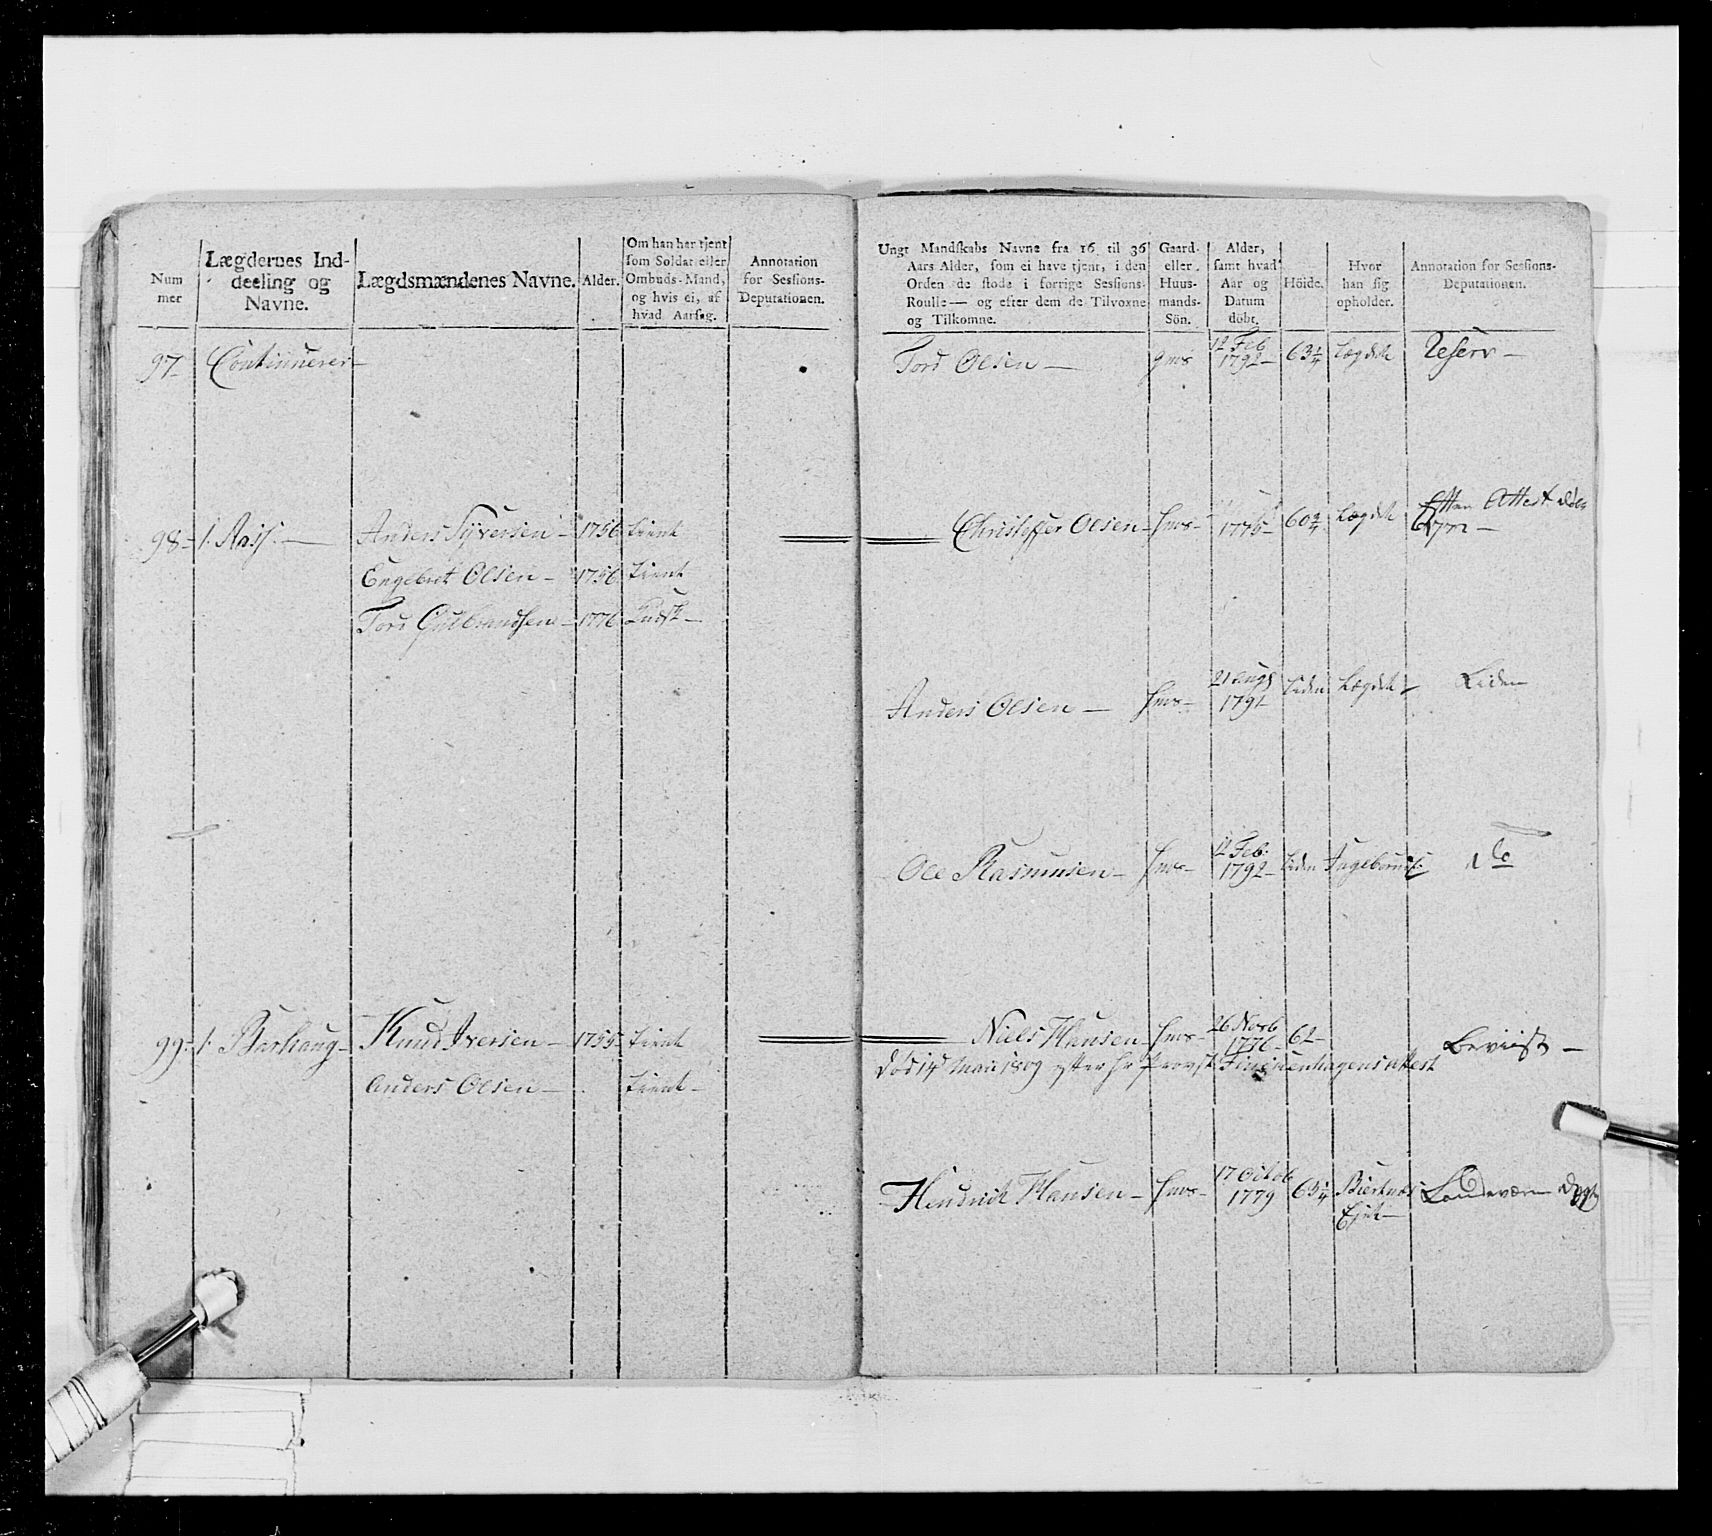 Num
mer
Lægdernes Ind-
deeling og
Navne.
Lægdsmændenes Navne.
Alder.
Om han har tjent
som Soldat eller
Ombuds-Mand,
og hvis ei, af
hvad Aarsag.
Annotation
for Sessions-
Deputationen.
Ungt Mandskabs Navne fra 16 til 36
Aars Alder, som ei have tjent, i den
Orden de stode i forrige Sessions-
Roulle— og efter dem de Tilvoxne
og Tilkomne.
Gaard-
eller
Huus-
mands-
Sön.
Alder,
samt hvad
Aar og
Datum
döbt.
Höide.
Hvor
han sig
opholder.
Annotation for Sessions-
Deputationen.
97- Continuerer-
Tord Olsen — gms 12 Feb 1792- 63 1/4 Lægdet Reserv —
98- 1. Aas — Anders Syversen - 1756 tient
Christoffer Olsen - hms - 1775- 60 3/4 Lægdet Attest
Engebret Olsen - 1756 tient
Tord Gulbrandsen - 1776 Kudsk -
Anders Olsen — hms - 21 augs 1791- Liden Lægdet - Liden
Ole Rasmusen - hms - 12 Feb: 1792- Liden do
99- 1. Barhaug - Knud Iversen - 1755- tient
Niels Hansen hms - 26 Novb 1776- 62- beviist —
død 14 Marti 1809 efter Hr Provst Finckenhagens attest
Anders Olsen — tient -
Hendrich Hansen - hms - 17 Octob 1779 63 1/4 Landeværn